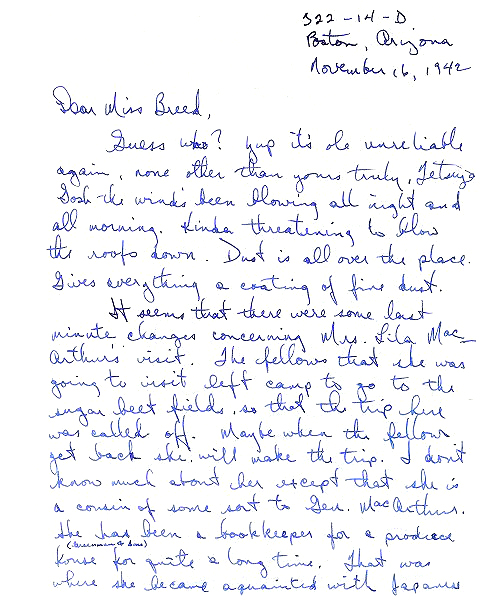 322-14-D
Poston, Arizona
November 16, 1942
Dear Miss Breed,
Guess who? Yup it's ole unreliable
again, none other than yours truly, Tetsuzo
Gosh the wind's been blowing all night and
all morning. Kinda threatening to blow
the roofs down. Dust is all over the place.
Gives everything a coating of fine dust.
It seems that there were some last
minute changes concerning Mrs. Lila Mac-
Arthur's visit. The fellows that she was
going to visit left camp to go to the
sugar beet fields, so that the trip here
was called off. Maybe when the fellows
get back she will make the trip. I don't
know much about her except that she is
a cousin of some sort to Gen. MacArthur.
She has been a bookkeeper for a produce
( & Sons)
house for quite a long time. That was
where she became aquainted with Japanese